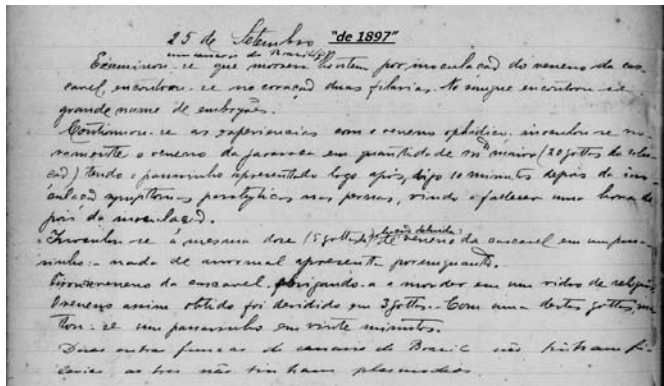 25 de Setembro "de 1897"
um canario do Brasil
Examinou-se que morrera hontem por inoculação do veneno da cas-
cavel, encontrou-se no coração duas filarias. No sangue encontrou-se
grande nume de embryões.
Continuou-se as experiencias com o veneno ophidico. inoculou-se no-
vamente o veneno da jararaca em quantidade mto maior (20 gottas da solu-
ção) tendo o passarinho apresentado logo após, digo 10 minutos depois da ino-
culação symptomas paralyticos nas pernas, vindo a fallecer uma hora de-
pois da inoculação.
Inoculou-se a mesma dose (5 gottas da solução diluida) de veneno da cascavel em um passa-
rinho: nada de anormal apresenta por emquanto.
Tirou-se veneno da cascavel, obrigando-a a morder em um vidro de relogio.
O veneno assim obtido foi dividido em 3 gottas. Com uma destas gottas, ma-
tou-se um passarinho em vinte minutos.
Duas outras femeas de canario do Brasil não tinham fi-
larias as tres não tinham plasmodios